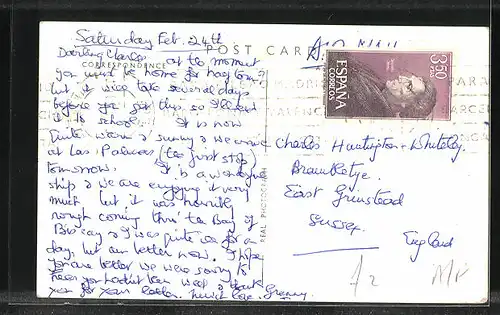 Saturday Feb. 24th
POST CARD
CORRESPONDENCE
Darling Charles at the moment
you must be home for half term?
but it will take several days
before you get this, so I'll send
it to school. It is now
quite warm & sunny & we arrive
at Las Palmas (the first stop)
tomorrow. It is a wonderful
ship & we are enjoying it very
much but it was horribly
rough coming thro' the Bay of
Biscay & I was quite ill for a
day, but am better now. I hope
you are better we were sorry to
hear you hadn't been well & thank
you for your letter. much love. Granny
REAL PHOTOGRAPH
AIR MAIL
3,50
PTAS
ESPAÑA
CORREOS
Charles Huntington-Whiteley
Brambletye
East Grinstead
Sussex
England